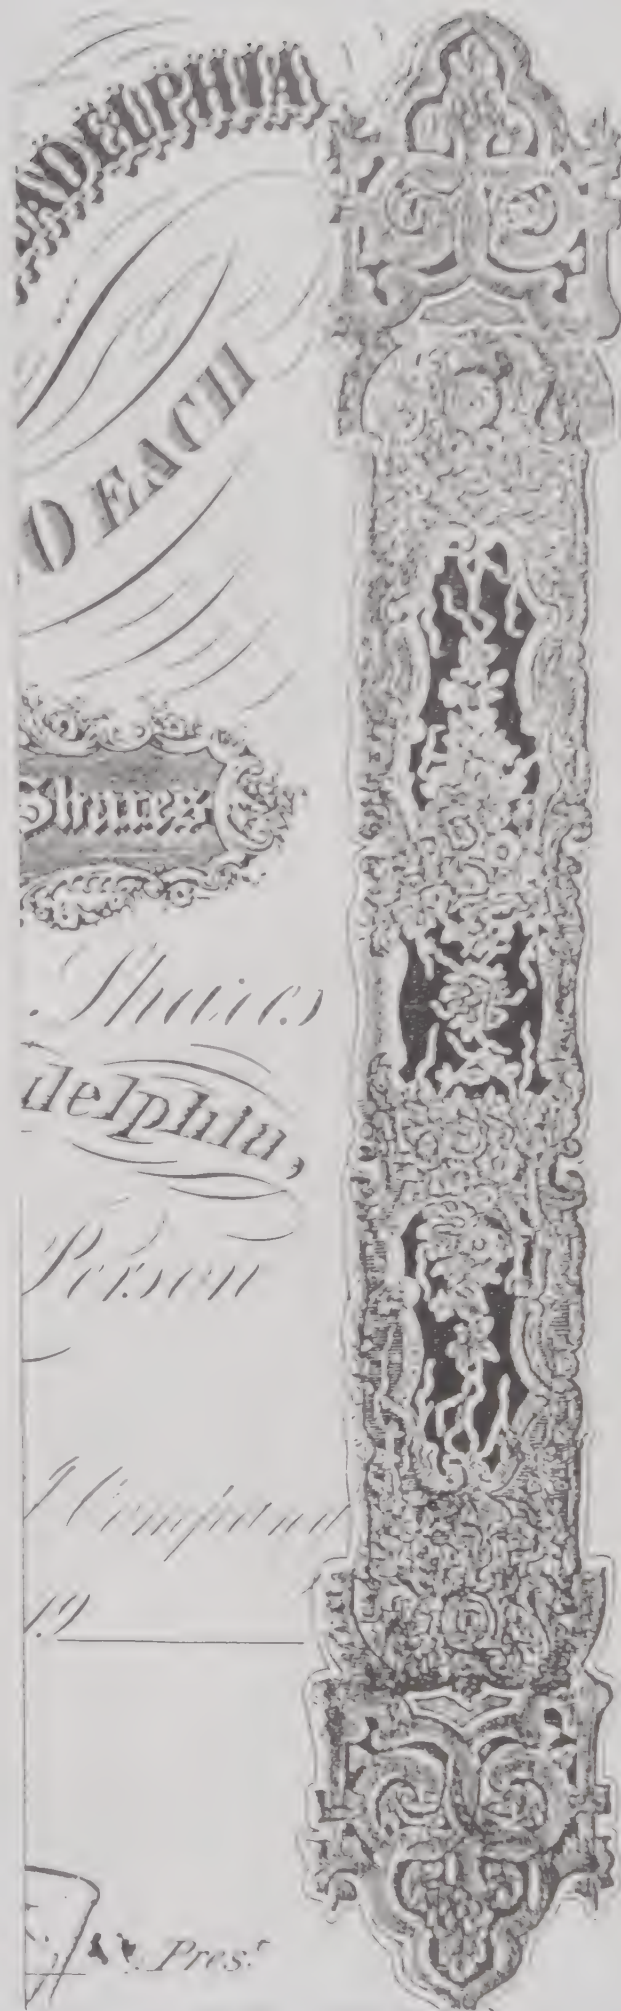 ADELPHIA
0 EACH
Shares
Shares
delphia,
Person
Company
19
Pres.t